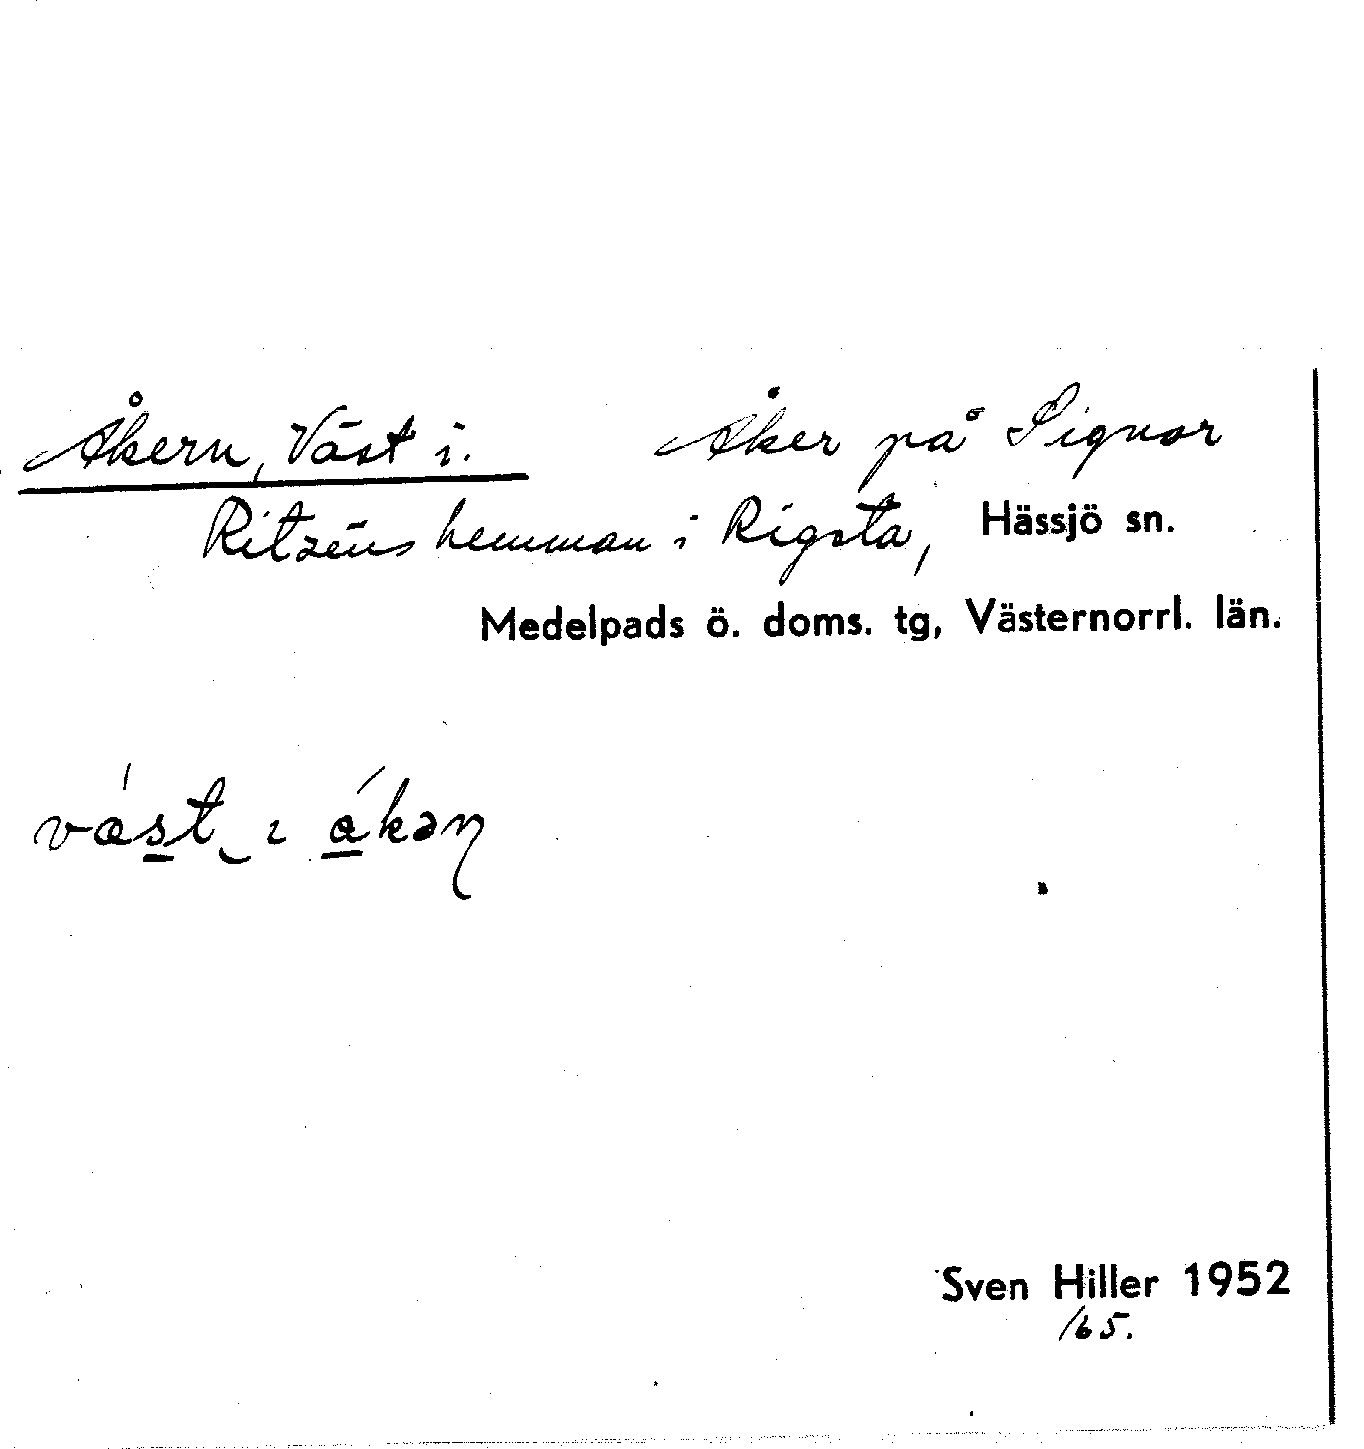 Åkern, Väst i. Åker på Signar
Ritzéns hemman i Rigsta, Hässjö sn.
Medelpads ö. doms. tg, Västernorrl. län.
Sven Hiller 1952
165.